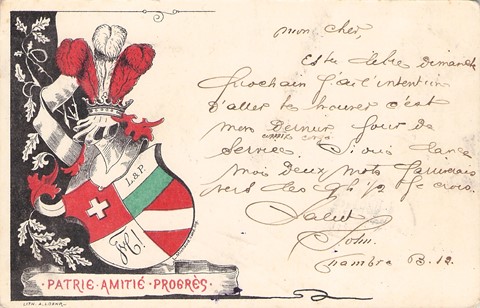 mon cher,
Es tu libre dimanche
prochain j'ai l'intention
d'aller te trouver c'est
mon Dernier jour de
service. Si oui
moi Deux mots
vers les 9h 1/2 je crois.
Salut
John.
Chambre B.12
L & P.
PATRIE·AMITIÉ·PROGRÈS·